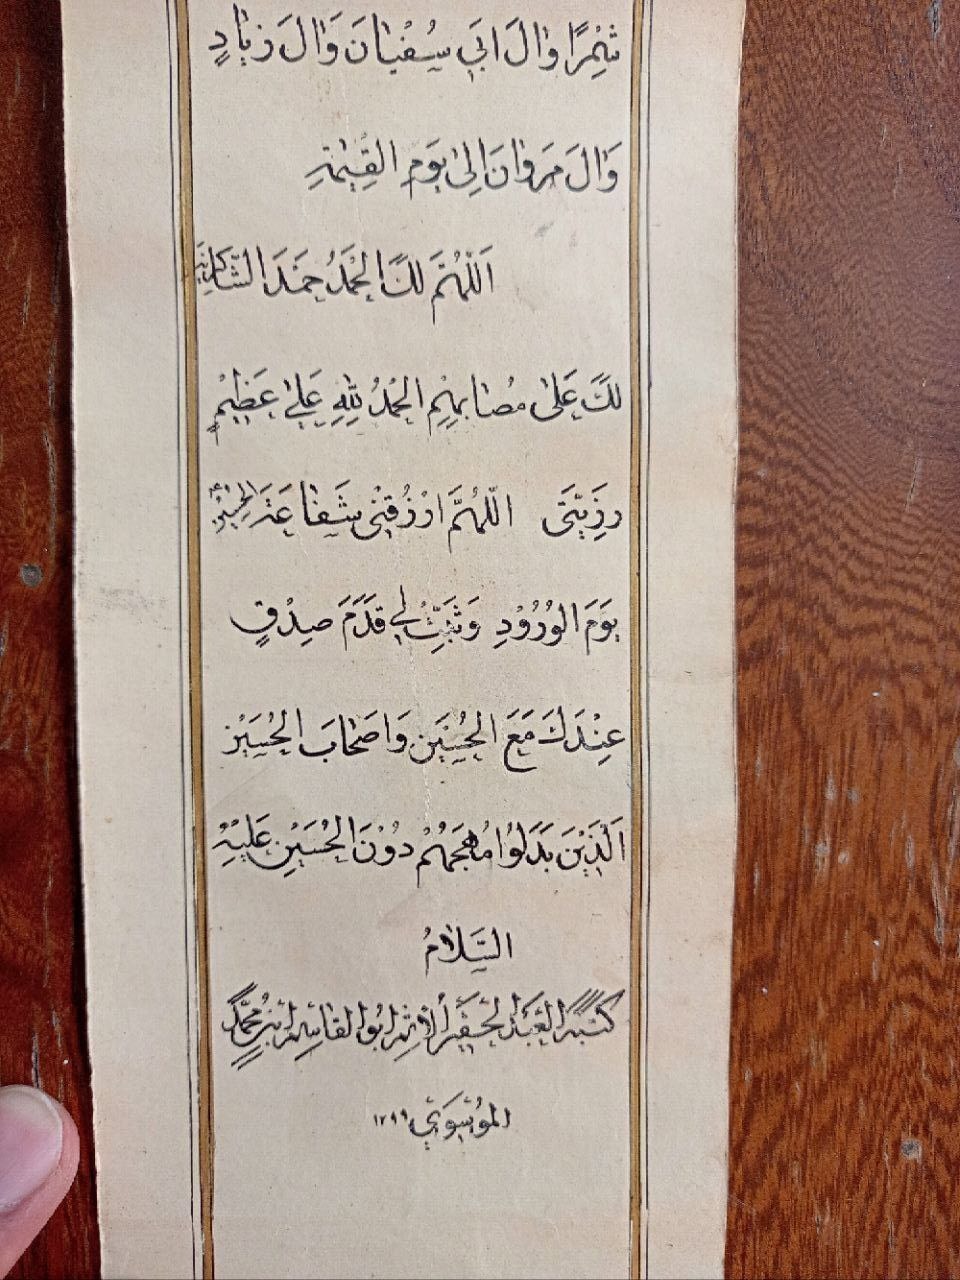 شِمْرًا وَالَ اَبی سُفْیٰانَ وَالَ زِیٰادٍ
وَالَ مَرْوٰانَ اِلیٰ یَوْمِ القِیٰمَةِ
اَللّٰهُمَّ لَكَ الحَمْدُ حَمْدَ الشّاكِرِینَ
لَكَ عَلیٰ مُصٰابِهِمْ الحَمْدُ لِلّٰهِ عَلیٰ عَظِیْمِ
رَزِیَّتی اللّٰهُمَّ ارْزُقْنی شَفٰاعَةَ الحُسَیْنِ
یَوْمَ الوُرُوْدِ وَثَبِّتْ لی قَدَمَ صِدْقٍ
عِنْدَكَ مَعَ الحُسَیْنِ وَاَصْحٰابِ الحُسَیْنِ
اَلَّذِیْنَ بَذَلُوْا مُهَجَهُمْ دُوْنَ الْحُسَیْنِ عَلَیْهِ
السَّلامُ
كتبه العَبْدُ الحَقیرُ الاثِمُ ابوالقاسِم ابن مُحَمَّد
الموُسَوی ١٢٩٩